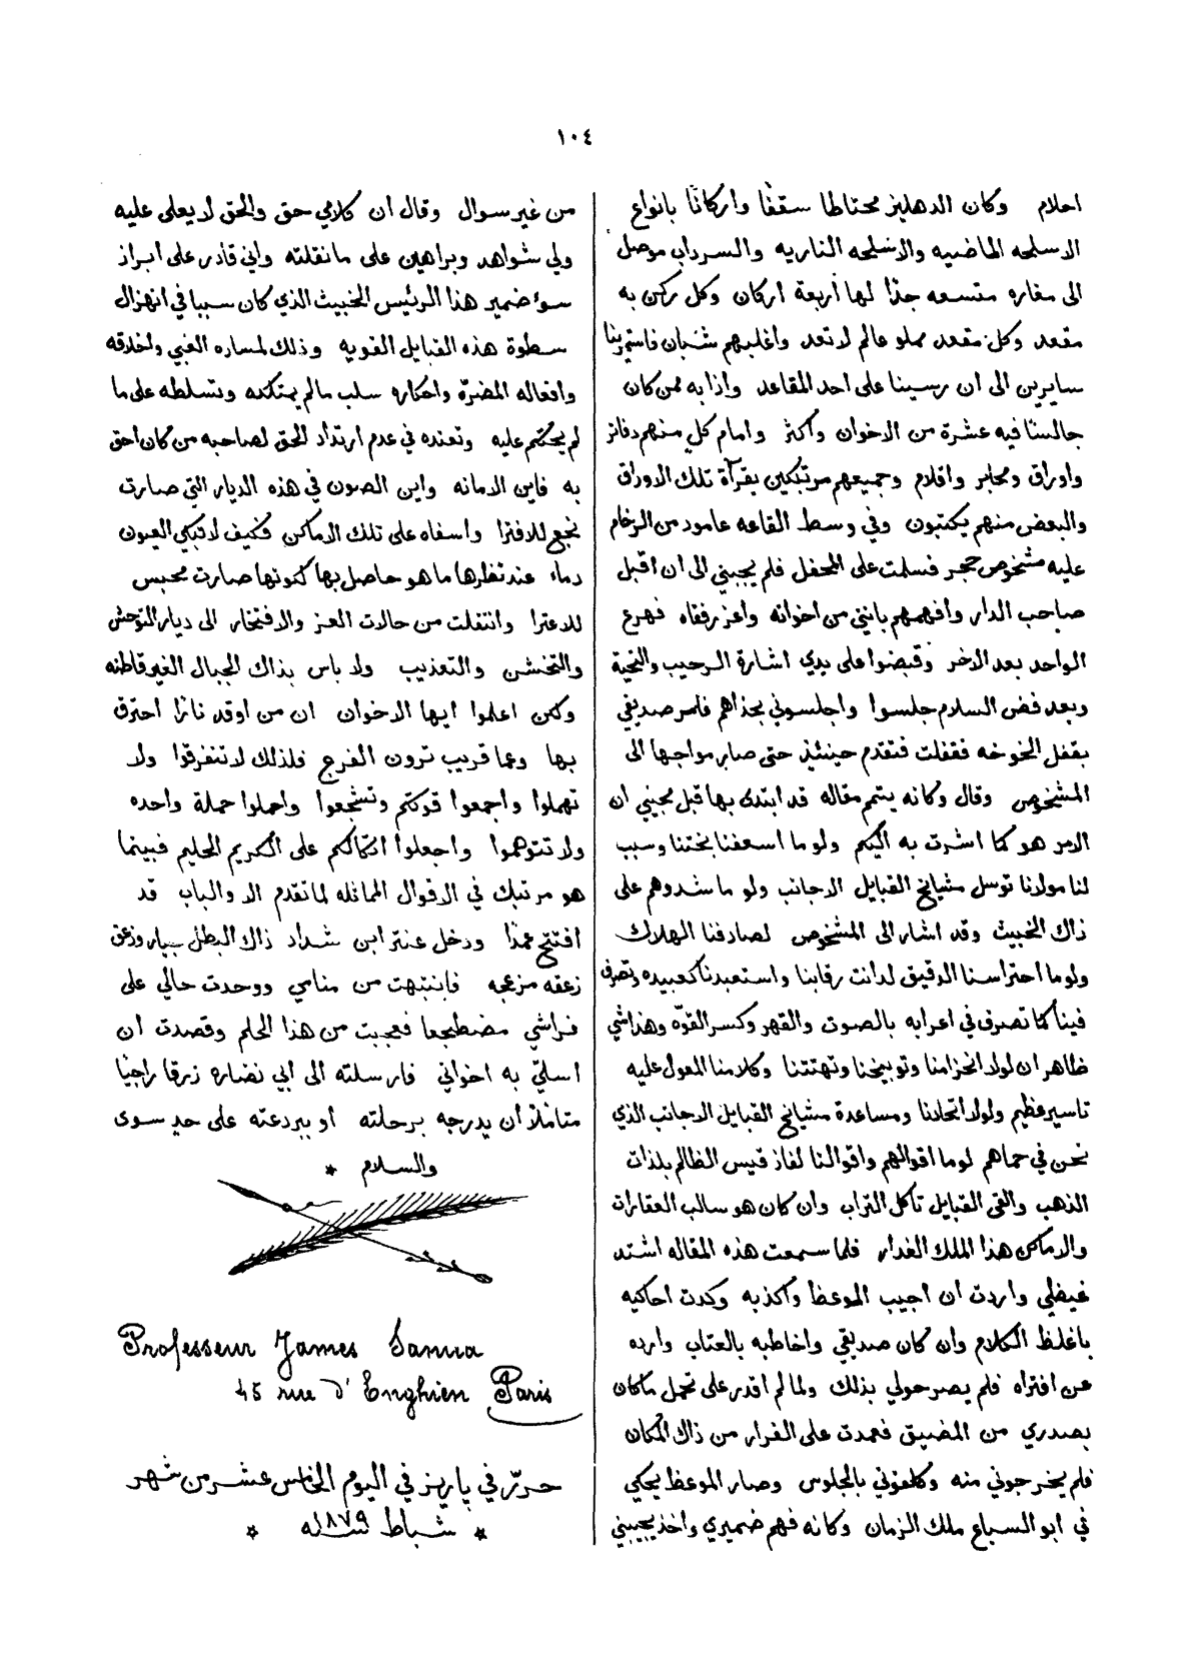 ١٠٤
احلام وكان الدهليز محتاطا سقفًا واركانًا بانواع
الاسلحه الماضيه والاسلحه الناريه والسرداب موصل
الى مغاره متسعه جدًا لها اربعة اركان وكل ركن به
مقعد وكل مقعد مملو عالم لا تعد واغلبهم شبان فاستمرينا
سايرين الى ان رسينا على احد المقاعد واذا به ممن كان
جالسًا فيه عشرة من الاخوان واكثر وامام كلٍ منهم دفاتر
واوراق ومحابر واقلام وجميعهم مرتبكين بقرآة تلك الاوراق
والبعض منهم يكتبون وفي وسط القاعه عامود من الرخام
عليه مشخوص حجر فسلمت على المحفل فلم يجبني الى ان اقبل
صاحب الدار وافهمهم بانني من اخوانه واعز رفقاه فهرع
الواحد بعد الاخر وقبضوا على يدي اشارة الرحيب والتحية
وبعد فض السلام جلسوا واجلسوني بحذاهم فامر صديقي
بقفل الخوخه فقفلت فتقدم حينئذٍ حتى صار مواجها الى
المشخوص وقال وكانه يتمم مقاله قد ابتدى بها قبل مجيني ان
الامر هو كما اشرت به اليكم ولو ما اسعفنا بختنا وسبب
لنا مولانا توسل مشيايخ القبايل الاجانب ولو ما شدوهم على
ذاك الخبيث وقد اشار الى المشخوص لصادفنا الهلاك
ولو ما احتراسنا الدقيق لدانت رقابنا واستعبدنا كعبيده وتصرف
فينا كما تصرف في اعرابه بالصوت والقهر وكسر القوّه وهذا شي
ظاهر ان لولا انحزامنا وتوبيخنا وتهتتنا وكلامنا المعول عليه
تاسير عظيم ولولا اتحادنا ومساعدة مشيايخ القبايل الاجانب الذي
نحن في حماهم لو ما اقوالهم واقوالنا لفاز قيس الظالم بلذات
الذهب والقى القبايل تأكل التراب وان كان هو سالب العقارات
والاماكن هذا الملك الغدار فلما سمعت هذه المقاله اشتد
غيظي واردت ان اجيب الموعظ واكذبه وكدت احاكيه
باغلظ الكلام وان كان صديقي واخاطبه بالعتاب وارده
عن افتراه فلم يصرحولي بذلك ولما لم اقدر على تحمل ما كان
بصدري من المضيق فعمدت على الفرار من ذاك المكان
فلم يخرجوني منه وكلفوني بالجلوس وصار الموعظ يحكي
في ابو السباع ملك الزمان وكانه فهم ضميري واخذ يجيبني
من غير سوال وقال ان كلامي حق والحق لا يعلى عليه
ولي شواهد وبراهين على ما نقلته واني قادر على ابراز
سوء ضمير هذا الرئيس الخبيث الذي كان سببا في انهزال
سطوة هذه القبايل القويه وذلك لمساره الغبي واخلاقه
وافعاله المضرّه واحكاره سلب مالم يمتلكه وتسلطه على ما
لم يحتكم عليه وتعنده في عدم ارتداد الحق لصاحبه من كان احق
به فاين الامانه واين الصون في هذه الديار التي صارت
نجع للافترا واسفاه على تلك الاماكن فكيف لا تبكي العيون
دماء عند نظرها ما هو حاصل بها كونها صارت محبس
للاعترا وانتقلت من حالات العز والافتخار الى ديار التوحش
والتخشن والتعذيب ولا باس بذاك الجبال الغير قاطنه
ولكن اعلموا ايها الاخوان ان من اوقد نارًا احترق
بها وعما قريب ترون الفرج فلذلك لا تتفرقوا ولا
تهملوا واجمعوا قوتكم وتشجعوا واحملوا حملة واحده
ولا تتوهموا واجعلوا اتكالكم على الكريم الحليم فبينما
هو مرتبك في الاقوال المماثله لما تقدم الا والباب قد
افتتح عمدًا ودخل عنتر ابن شداد ذاك البطل وزعق
زعقه مزعجه فانتبهت من منامي ووجدت حالي على
فراشي مضطجعا فعجبت من هذا الحلم وقصدت ان
اسلي به اخواني فارسلته الى ابي نضاره زرقا راجيًا
متاملاً أن يدرجه برحلته أو بردعته على حدٍ سوى
والسلام *
Professeur James Sanua
45 rue d' Enghien Paris
حرّر في پاريز في اليوم الخامس عشر من شهر
* شباط سنة ١٨٧٩ *